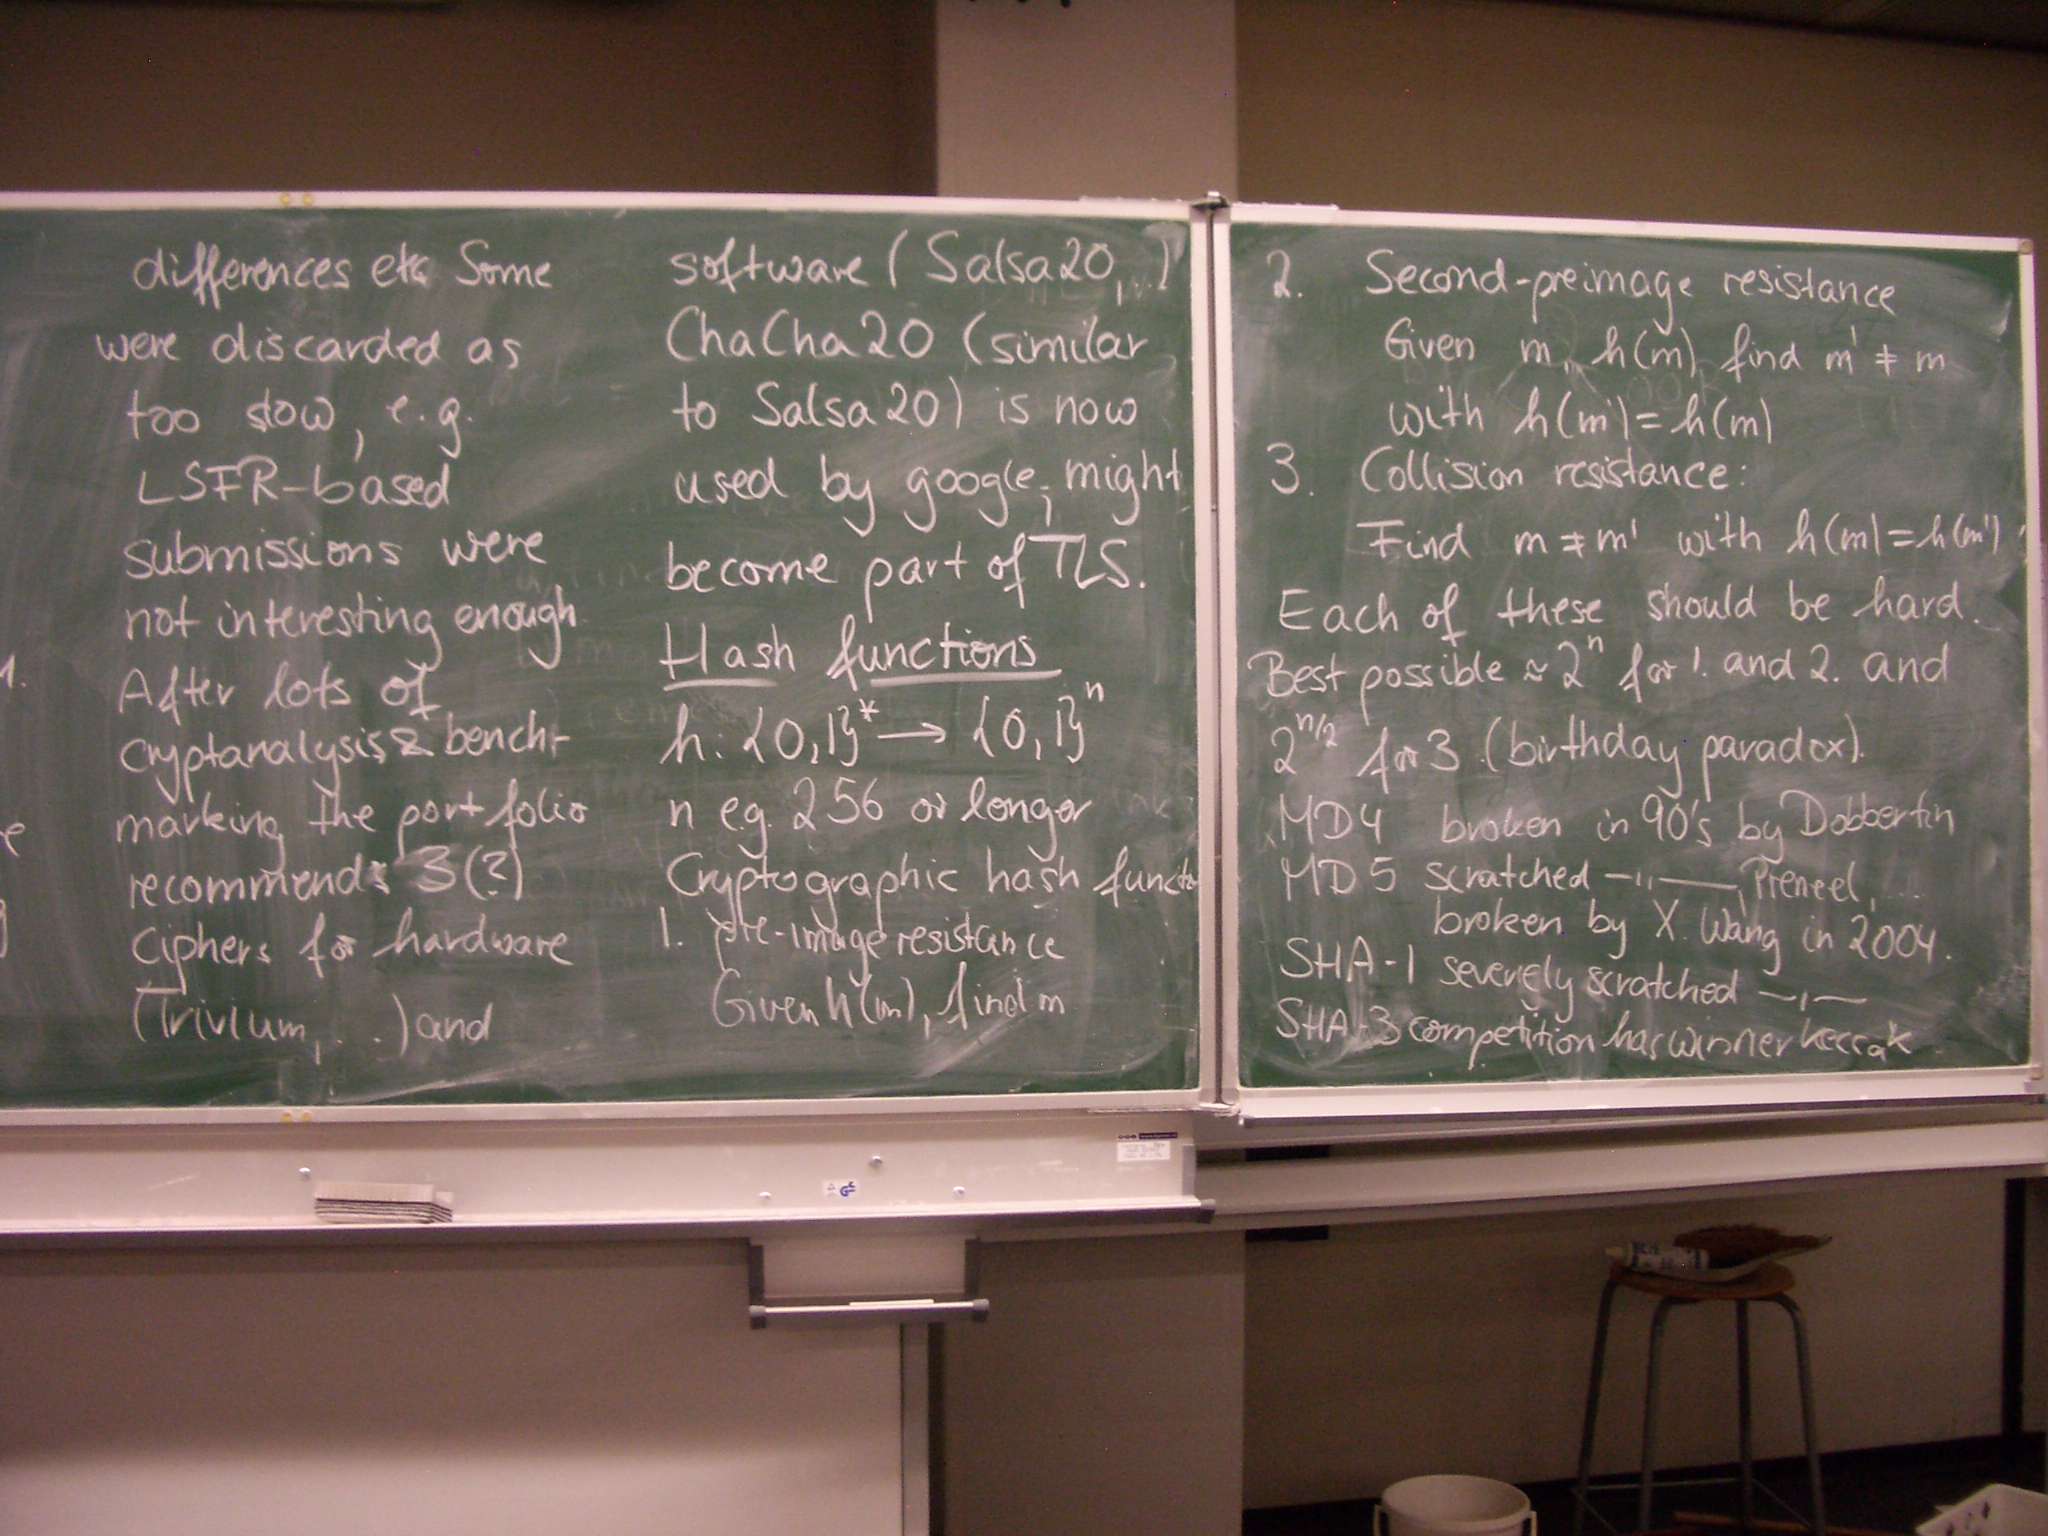 differences etc Some
were discarded as
too slow, e.g.
LSFR-based
submissions were
not interesting enough.
After lots of
cryptanalysis & bench-
marking the portfolio
recommends 3(?)
ciphers for hardware
(Trivium, ...) and
software (Salsa20, ...)
ChaCha20 (similar
to Salsa20) is now
used by google, might
become part of TLS.
Hash functions
h: {0,1}* → {0,1}ⁿ
n e.g. 256 or longer
Cryptographic hash functio
1. pre-image resistance
Given h(m), find m
2. Second-preimage resistance
Given m, h(m) find m' ≠ m
with h(m') = h(m)
3. Collision resistance:
Find m ≠ m' with h(m) = h(m')
Each of these should be hard.
Best possible ≈ 2ⁿ for 1. and 2. and
2^(n/2) for 3. (birthday paradox).
MD4 broken in 90's by Dobbertin
MD5 scratched —"—, Preneel, ...
broken by X. Wang in 2004.
SHA-1 severely scratched —"—
SHA-3 competition has winner keccak